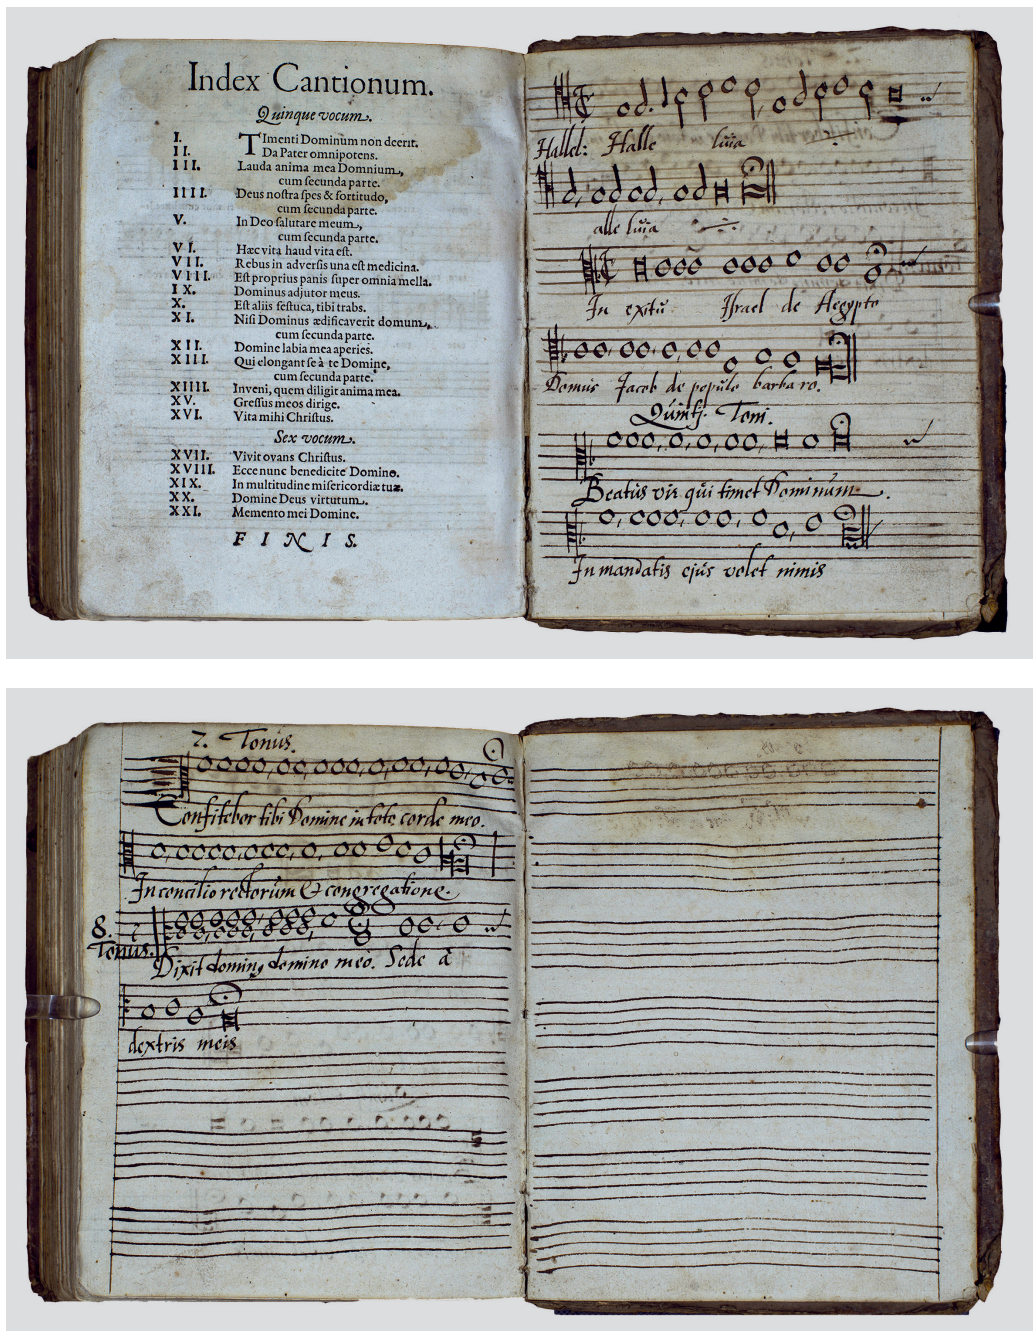 Index Cantionum.
Quinque vocum.
I. Timenti Dominum non deerit.
II. Da Pater omnipotens.
III. Lauda anima mea Domnium,
cum secunda parte.
IIII. Deus nostra spes & fortitudo,
cum secunda parte.
V. In Deo salutare meum,
cum secunda parte.
VI. Hæc vita haud vita est.
VII. Rebus in adversis una est medicina.
VIII. Est proprius panis super omnia mella.
IX. Dominus adjutor meus.
X. Est aliis festuca, tibi trabs.
XI. Nisi Dominus ædificaverit domum,
cum secunda parte.
XII. Domine labia mea aperies.
XIII. Qui elongant se à te Domine,
cum secunda parte.
XIIII. Inveni, quem diligit anima mea.
XV. Gressus meos dirige.
XVI. Vita mihi Christus.
Sex vocum.
XVII. Vivit ovans Christus.
XVIII. Ecce nunc benedicite Domino.
XIX. In multitudine misericordiæ tuæ.
XX. Domine Deus virtutum.
XXI. Memento mei Domine.
FINIS.
Hallel: Halle luia
alle luia
In exitu Israel de Aegypto
Domus Jacob de populo barbaro.
Quinti. Toni.
Beatus vir qui timet Dominum.
In mandatis ejus volet nimis
7. Tonus.
Confitebor tibi Domine in toto corde meo.
In concilio rectorum & congregatione.
8.
Tonus.
Dixit dominus domino meo. Sede a
dextris meis